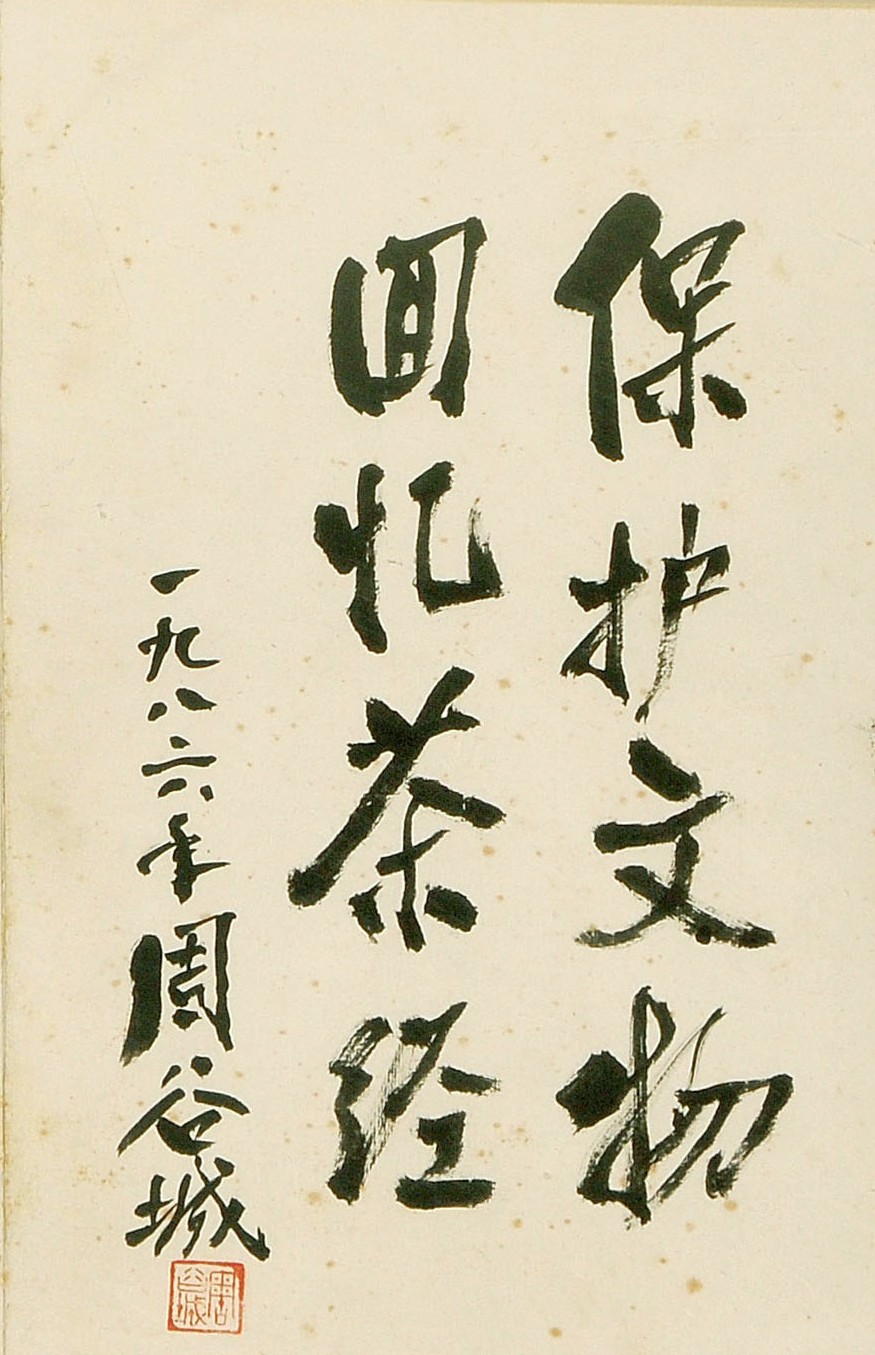 保护文物
回忆茶经
一九八六年周谷城
周谷城